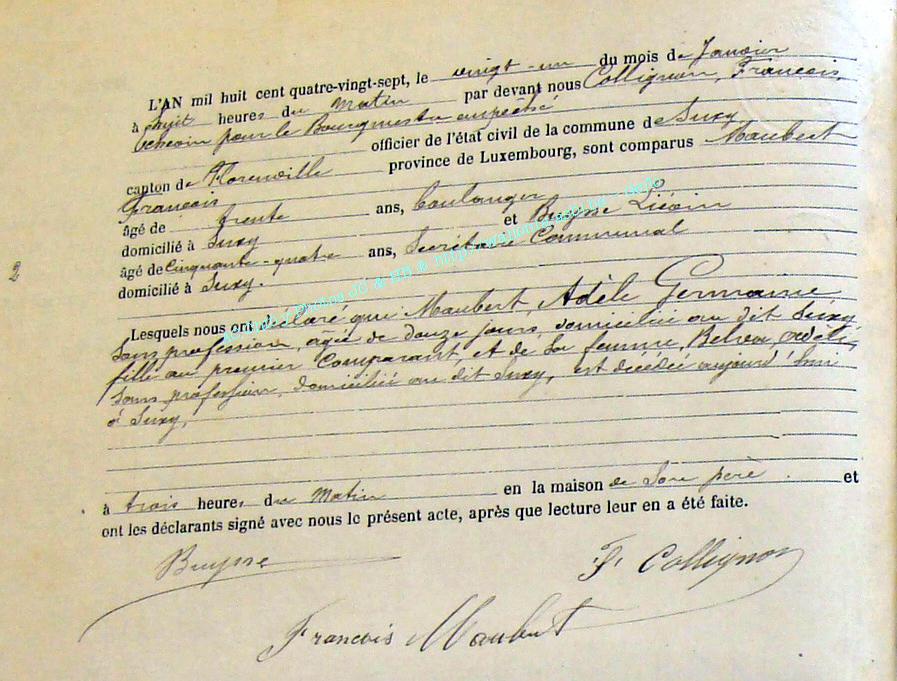 L'AN mil huit cent quatre-vingt-sept, le vingt-un du mois de Janvier
à huit heures du Matin par devant nous Collignon, François,
échevin pour le Bourgmestre empêché
officier de l'état civil de la commune de Suxy
canton de Florenville province de Luxembourg, sont comparus Maubert
François
âgé de trente ans, boulanger
domicilié à Suxy et Buysse
âgé de Cinquante-quatre ans, Secrétaire Communal
domicilié à Suxy.
Lesquels nous ont déclaré que Maubert, Adèle Germaine
Sans profession, agée de douze jours, domiciliée au dit Suxy
fille au premier Comparant, et de Sa femme,
Sans profession, domiciliée au dit Suxy, est décédée aujourd'hui
à Suxy,
à trois heures du Matin en la maison de Son père. et
ont les déclarants signé avec nous le présent acte, après que lecture leur en a été faite.
Buysse
F. Collignon
François Maubert